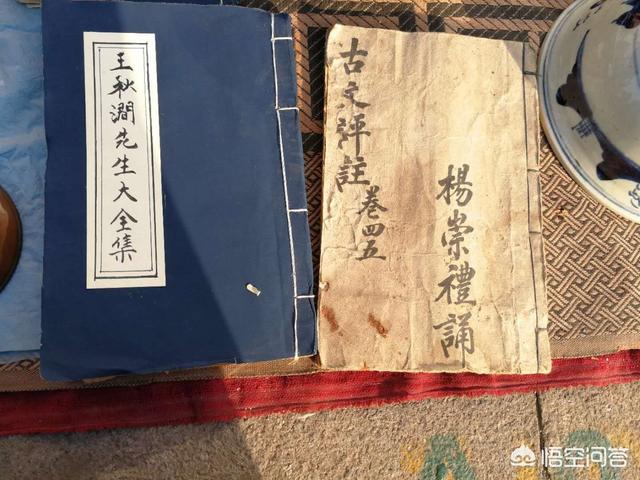 王秋澗先生大全集
古文評註
卷四五
楊崇禮誦
悟空问答